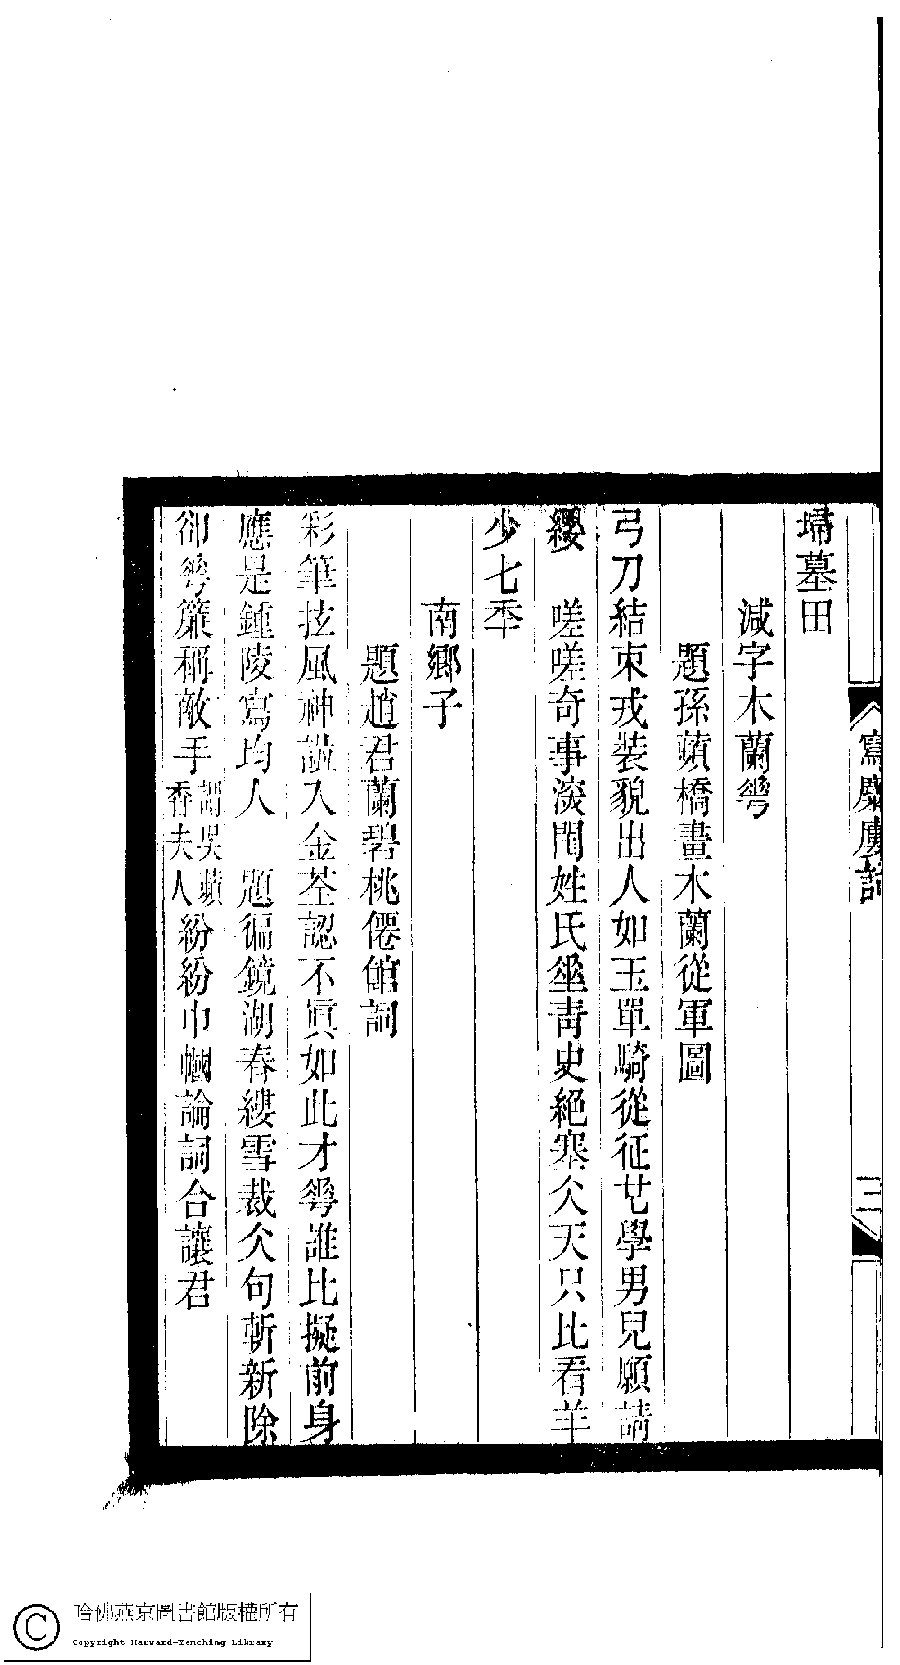 埽墓田
減字木蘭蕐
題孫蘋橋畫木蘭從軍圖
弓刀結束戎裝貌出人如玉單騎從征廿學男兒願請
纓　嗟嗟奇事淡聞姓氏㘴青史絕塞仌天只比看羊
少七秊
南鄉子
題趙君蘭碧桃僊館詞
彩筆抾風神讇入金荃認不眞如此才蕐誰比擬前身
應是鍾陵寫均人　題徧鏡湖春縷雪裁仌句斬新除
卻蕐簾稱敵手謂吳蘋香夫人紛紛巾幗論詞合讓君
寫麋廎詞
三
哈佛燕京圖書館版權所有
Copyright Harvard-Yenching Library